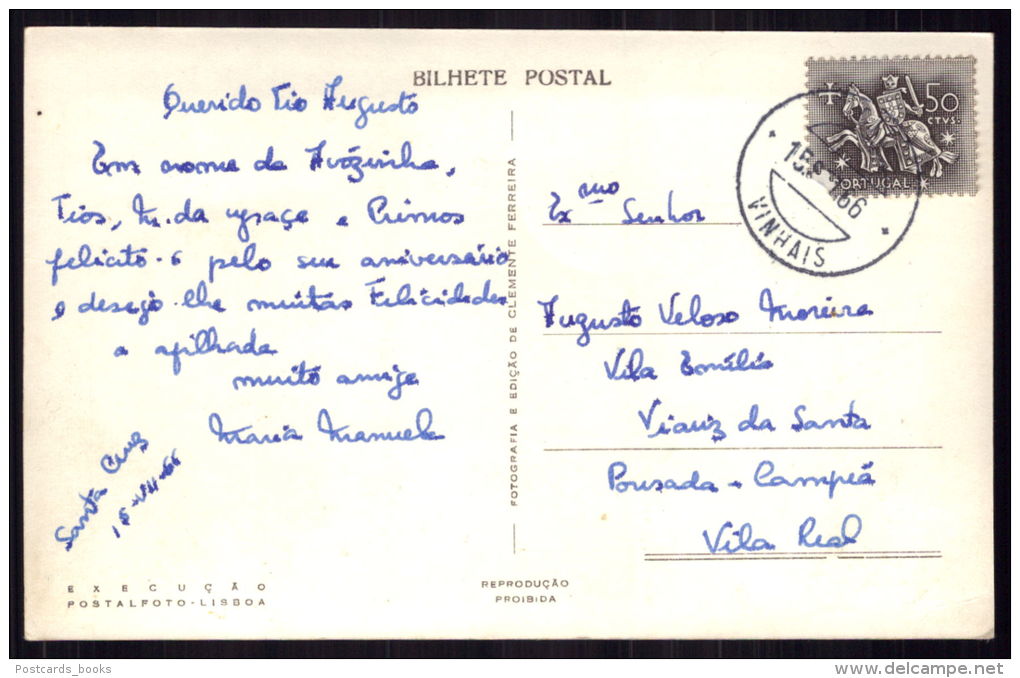 BILHETE POSTAL
Querido Tio Augusto
Em nome da Avózinha,
Tios, M. da graça e Primos
felicito-o pelo seu aniversário
e desejo-lhe muitas Felicidades
a afilhada
muito amiga
Maria Manuela
Santa Cruz
15-VII-66
EXECUÇÃO
POSTALFOTO-LISBOA
FOTOGRAFIA E EDIÇÃO DE CLEMENTE FERREIRA
REPRODUÇÃO
PROIBIDA
50
CTVS.
PORTUGAL
15
66
VINHAIS
Exmo Senhor
Augusto Veloso Moreira
Vila Emília
da Santa
Pousada - Campeã
Vila Real
Postcards_books
www.delcampe.net